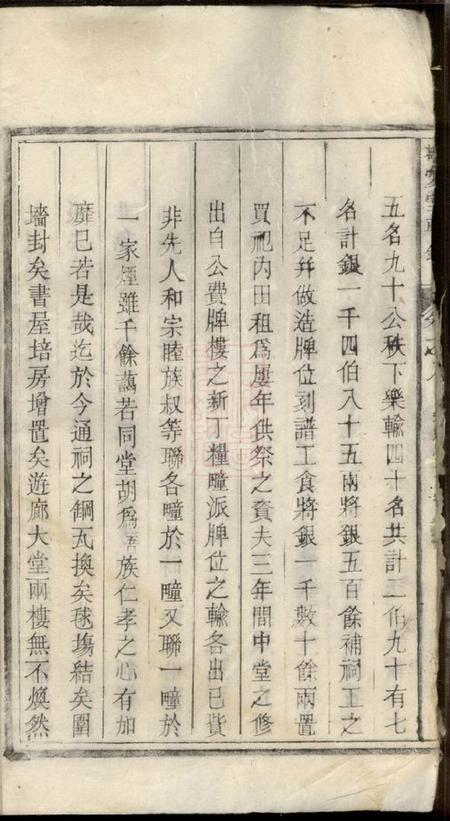 五名九十公秩下樂輸四十名共計二伯九十有七
名計銀一千四伯八十五兩將銀五百餘補祠工之
不足幷做造牌位刻譜工食將銀一千數十餘兩置
買祀內田租爲屢年供祭之資夫三年間中堂之修
出自公費牌樓之新丁糧疃派牌位之輸各出已貲
非先人和宗睦族叔等聯各疃於一疃又聯一疃於
一家煙雖千餘藹若同堂胡爲吾族仁孝之心有加
靡已若是哉迄於今通祠之鋼瓦換矣毬塲結矣圍
墻封矣書屋培房增置矣遊廊大堂兩樓無不煥然